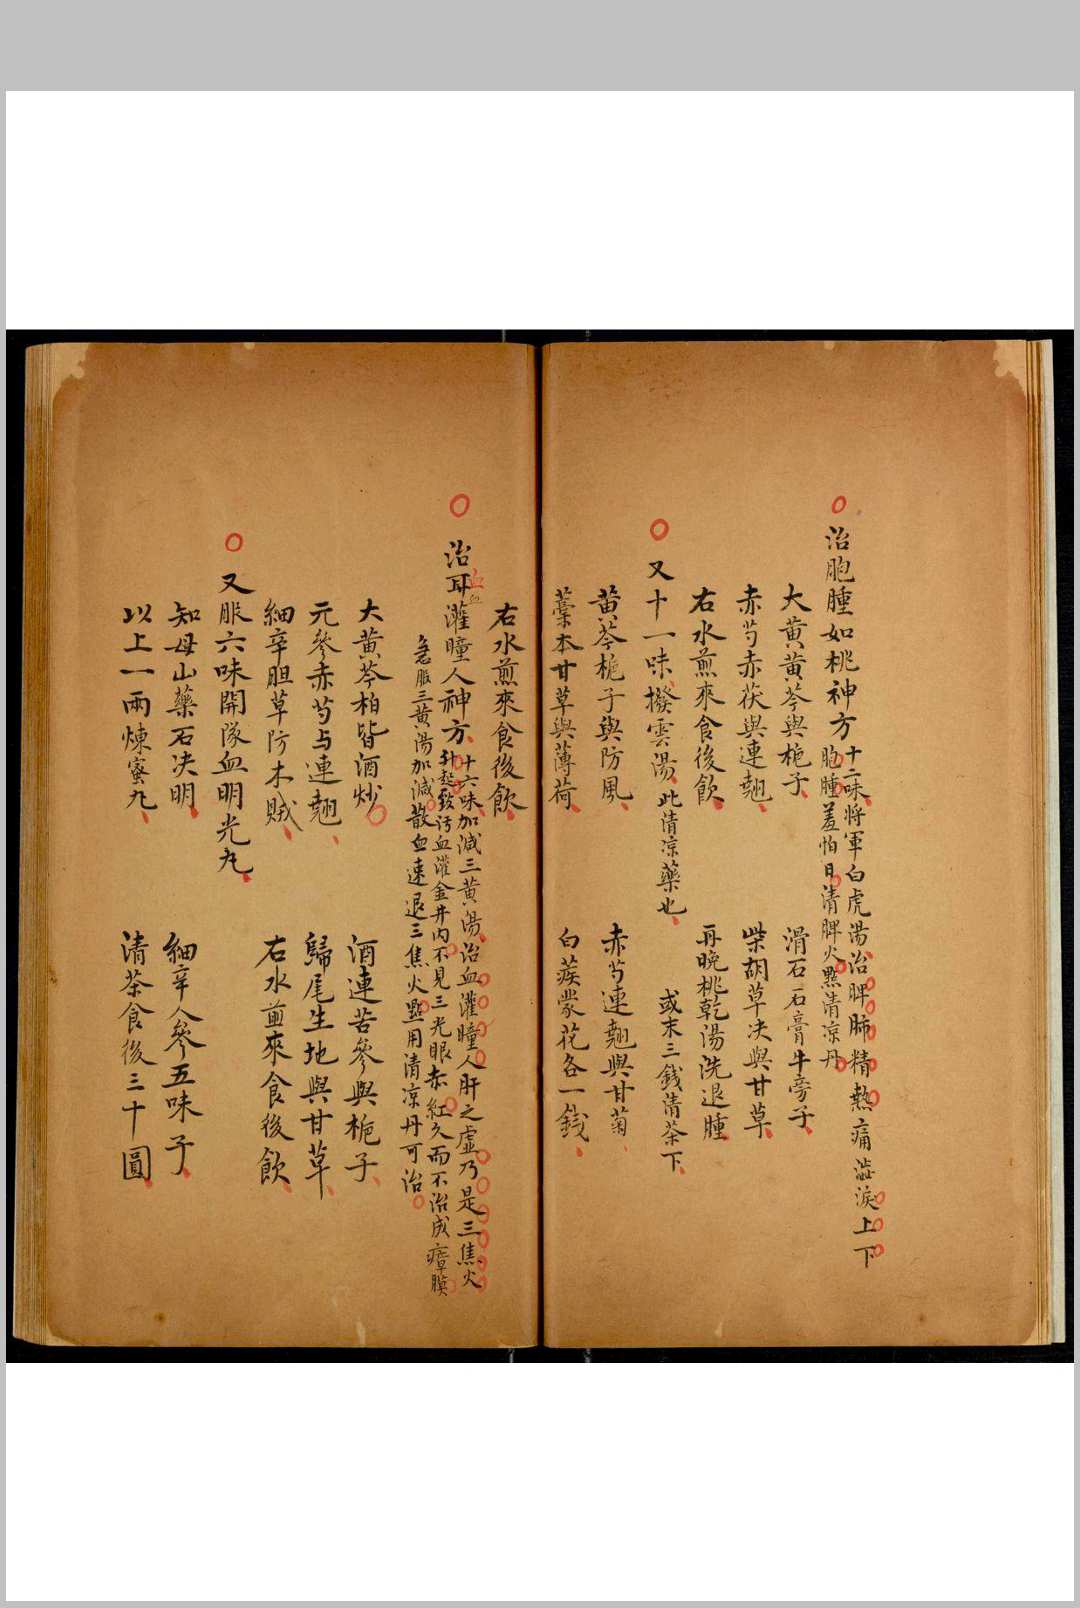 治胞腫如桃神方
十二味將軍白虎湯治脾肺精熱痛澁淚上下
胞腫羞怕日清脾火點清涼丹
大黄黄芩與梔子 滑石石膏牛旁子
赤芍赤茯與連翹 柴胡草决與甘草
右水煎來食後飲 再晚桃乾湯洗退腫
又十一味撥雲湯 此清涼藥也 或末三銭清茶下
黄芩梔子與防風 赤芍連翹與甘菊
藁本甘草與薄荷 白蒺蒙花各一銭
右水煎來食後飲
治耳灌瞳人神方
血
十六味加減三黄湯治血灌瞳人肝之虚乃是三焦火
升起致污血灌金井内不見三光眼赤紅久而不治成瘴膜
急服三黄湯加減散血速退三焦火點用清涼丹可治
大黄芩柏皆酒炒 酒連苦參與梔子
元參赤芍与連翹 歸尾生地與甘草
細辛胆草防木贼 右水煎來食後飲
又服六味開隊血明光丸
知母山藥石决明 細辛人參五味子
以上一兩煉蜜丸 清茶食後三十圓